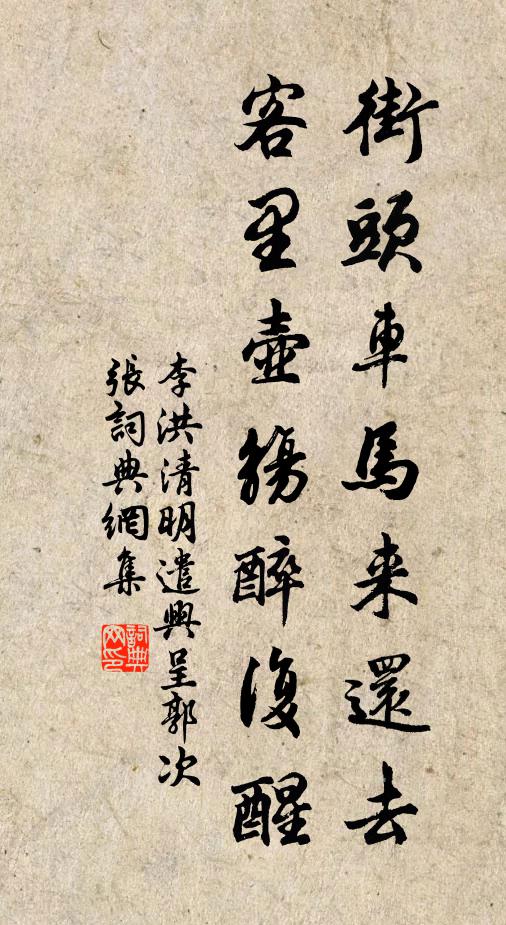 街頭車馬来還去
客里壺觴醉復醒
李洪清明遣興呈郭次
張詞典網集
詞典网印